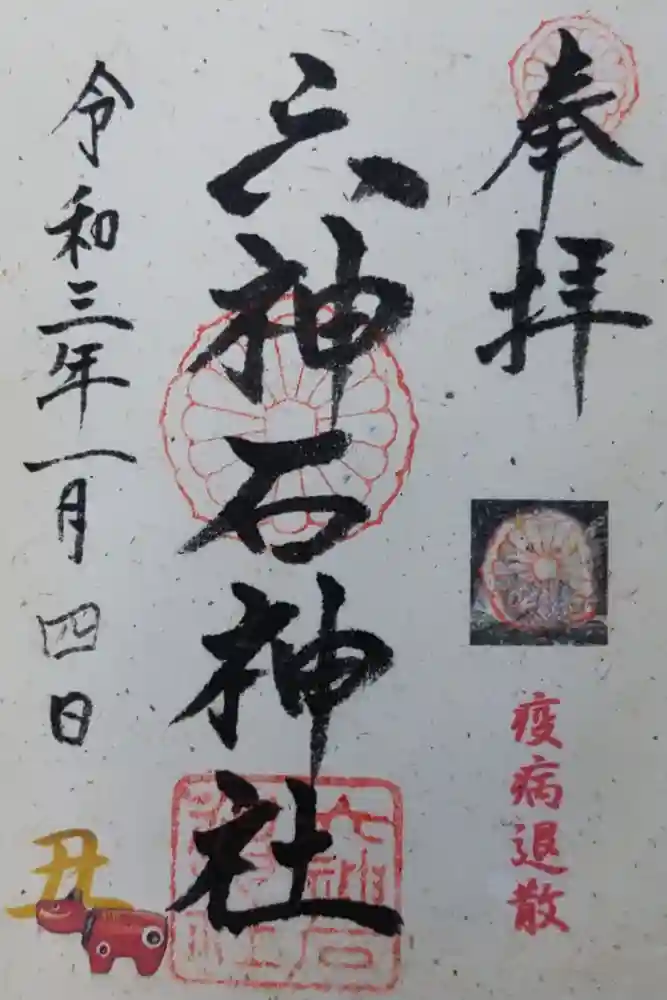 奉拝
疫病退散
六神石神社
令和三年一月四日
丑